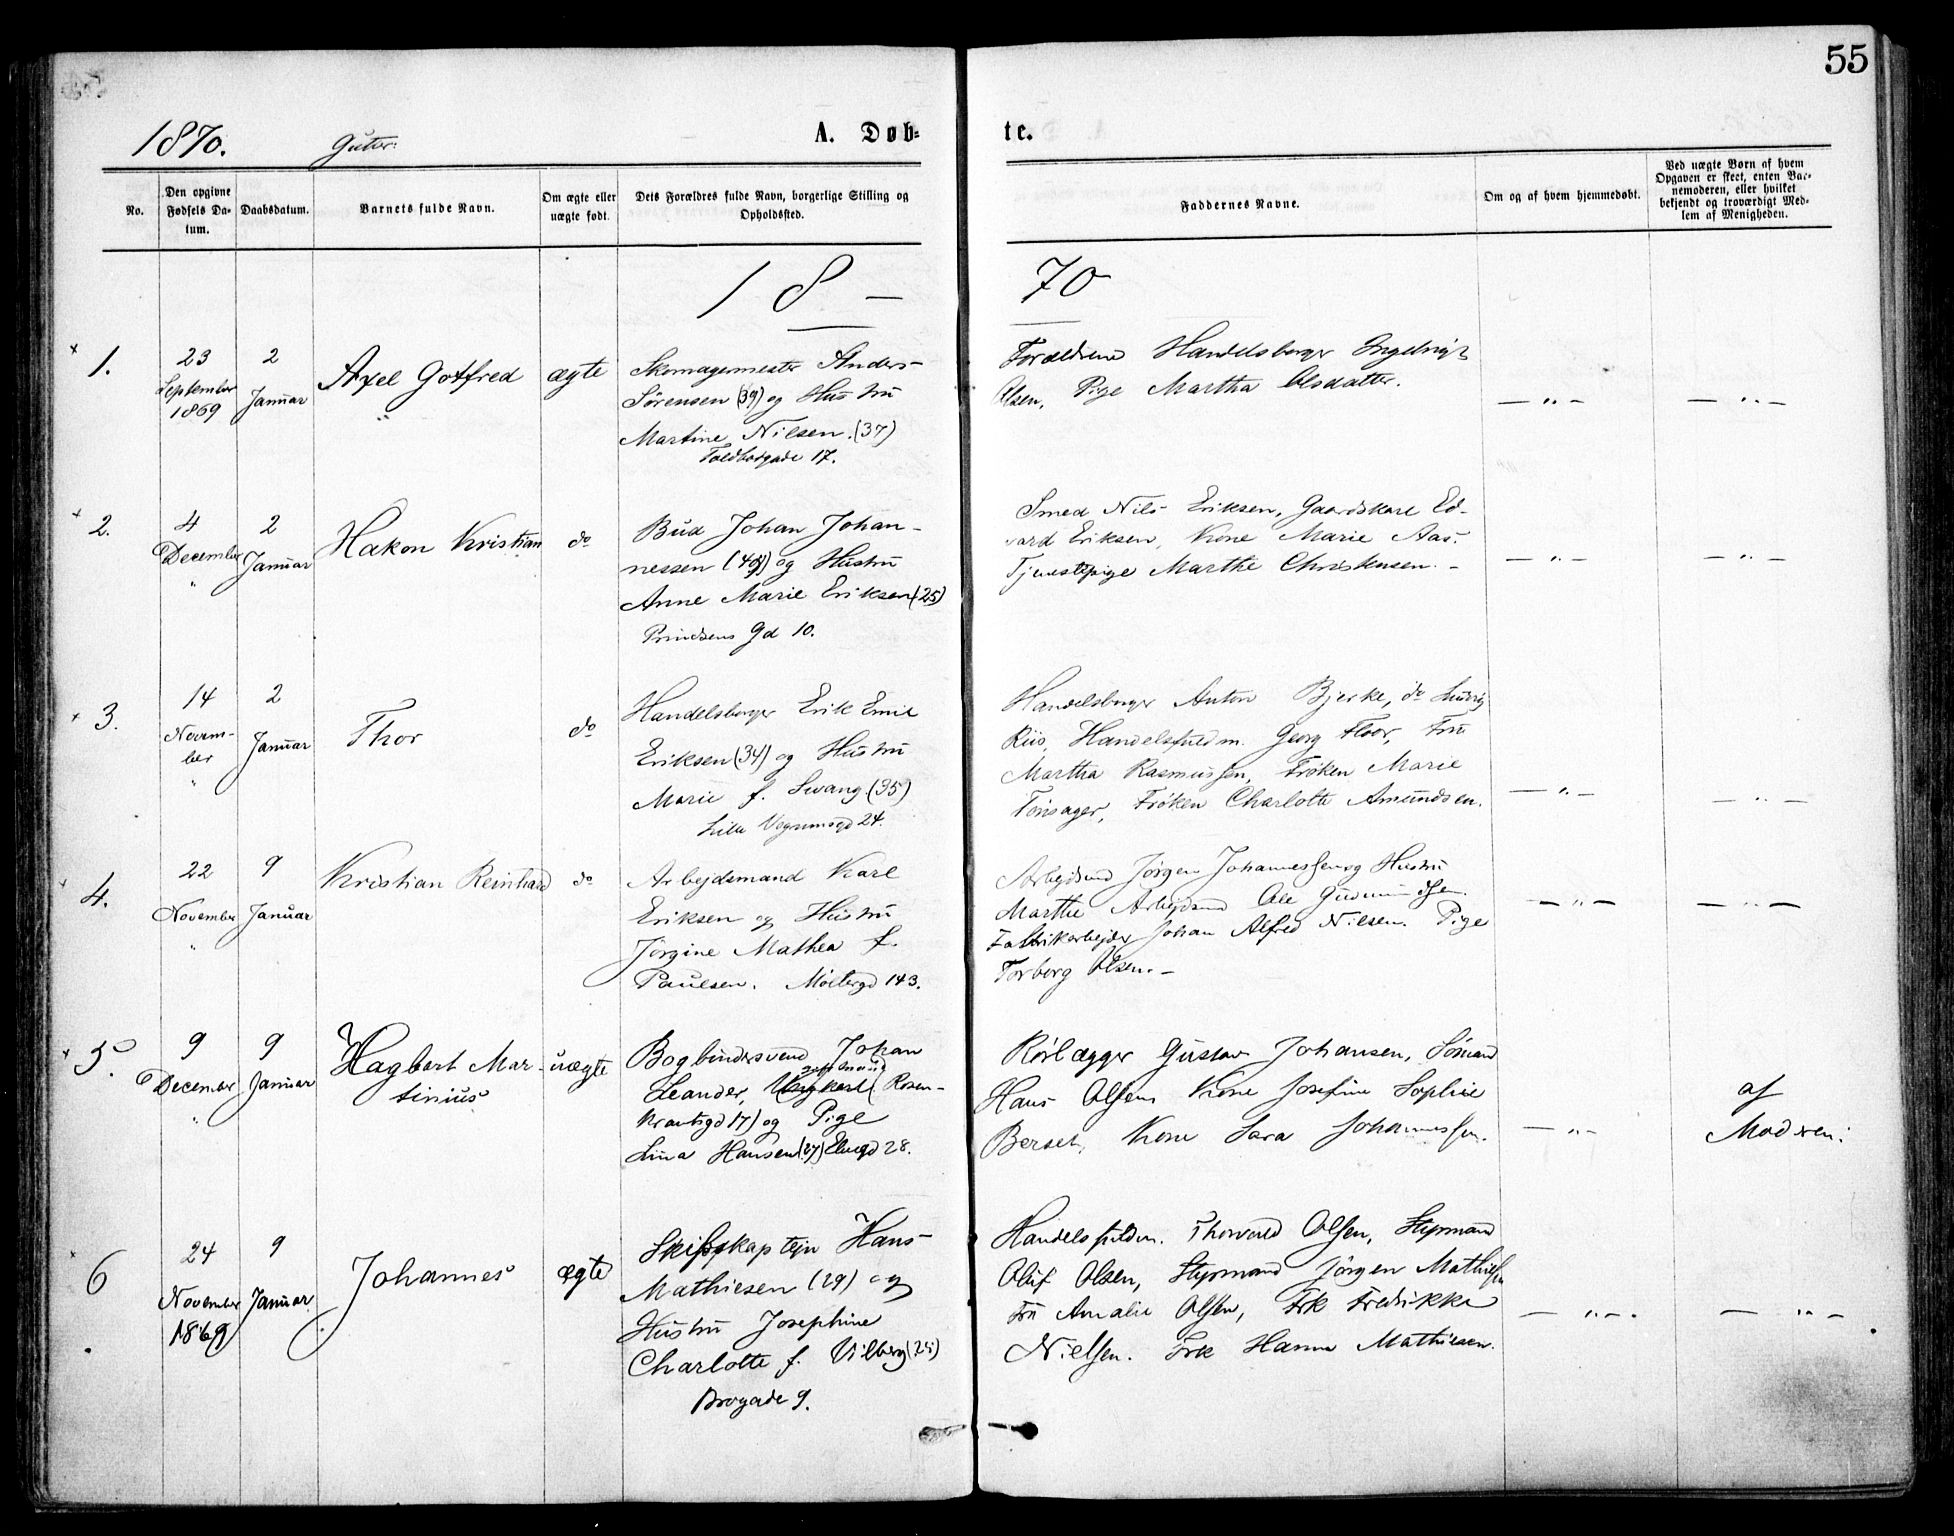 55
1870. Gutter: A. Døb= te.
No.
Den opgivne Fødsels Da-tum.
Daabsdatum.
Barnets fulde Navn.
Om ægte eller uægte født.
Dets Forældres fulde Navn, borgerlige Stilling og Opholdssted.
Faddernes Navne.
Om og af hvem hjemmedøbt.
Ved uægte Børn af hvem Opgaven er skeet, enten Bar-nemoderen, eller hvilket bekjendt og troværdigt Med-lem af Menigheden.
18 — 70
1.
23 September 1869
2 Januar
Axel Gotfred
ægte
Skomagermester Anders
Sørensen (39) og Hustru
Martine Nilsen. (37)
Toldbodgade 17.
Forældrene Handelsborger Ingebrigt
Olsen, Pige Martha Olsdatter.
— " —
— " —
2.
4 December "
2 Januar
Hakon Kristian
do
Bud Johan Johan-
nessen (49) og Hustru
Anne Marie Eriksen (25)
Prindsens Gd 10.
Smed Nils Eriksen, Gaardskarl Ed-
vard Eriksen, Kone Marie Aas,
Tjenestepige Marthe Christensen. -
— " —
— " —
3.
14 Novem-ber "
2 Januar
Thor
do
Handelsborger Erik Emil
Eriksen (34) og Hustru
Marie f. Svang. (35)
Lille Vognmsgd 24.
Handelsborger Anton Bjerke, do Ludvig
Riis, Handelsfuldm. Georg Floor, Fru
Martha Rasmussen, Frøken Marie
Tønsager, Frøken Charlotte Amundsen.
— " —
— " —
4.
22 November "
9 Januar
Kristian Reinhard
do
Arbejdsmand Karl
Eriksen og Hustru
Jørgine Mathea f.
Paulsen. Møllergd 143.
Arbejdsmd Jørgen Johannessen og Hustru
Marthe Arbejdsmd Ole Gudmundsen.
Fabrikarbejder Johan Alfred Nilsen. Pige
Torborg Olsen. -
— " —
— " —
5
9 December "
9 Januar
Hagbart Mar-
tinius
uægte
Bogbindersvend Johan
Leander, Ungkarl (Rosen-
krantsgd 17) og Pige
Lina Hansen (27) Elvegd 28.
Rørlægger Gustav Johansen, Sömand
Hans Olsen Kone Josefine Sophie
Berset, Kone Sara Johannessen.
— " —
af
Moderen.
6
24 November 1869
9 Januar
Johannes
ægte
Skibskaptejn Hans
Mathiesen (29) og
Hustru Josephine
Charlotte f. Vilberg (25)
Brogade 9.
Handelsfuldm. Thorvald Olsen, Styrmand
Oluf Olsen, Styrmand Jørgen Mathiesen
Fru Amalie Olsen, Frk Fredrikke
Nielsen. Frk Hanna Mathiesen.
— " — .
— " —